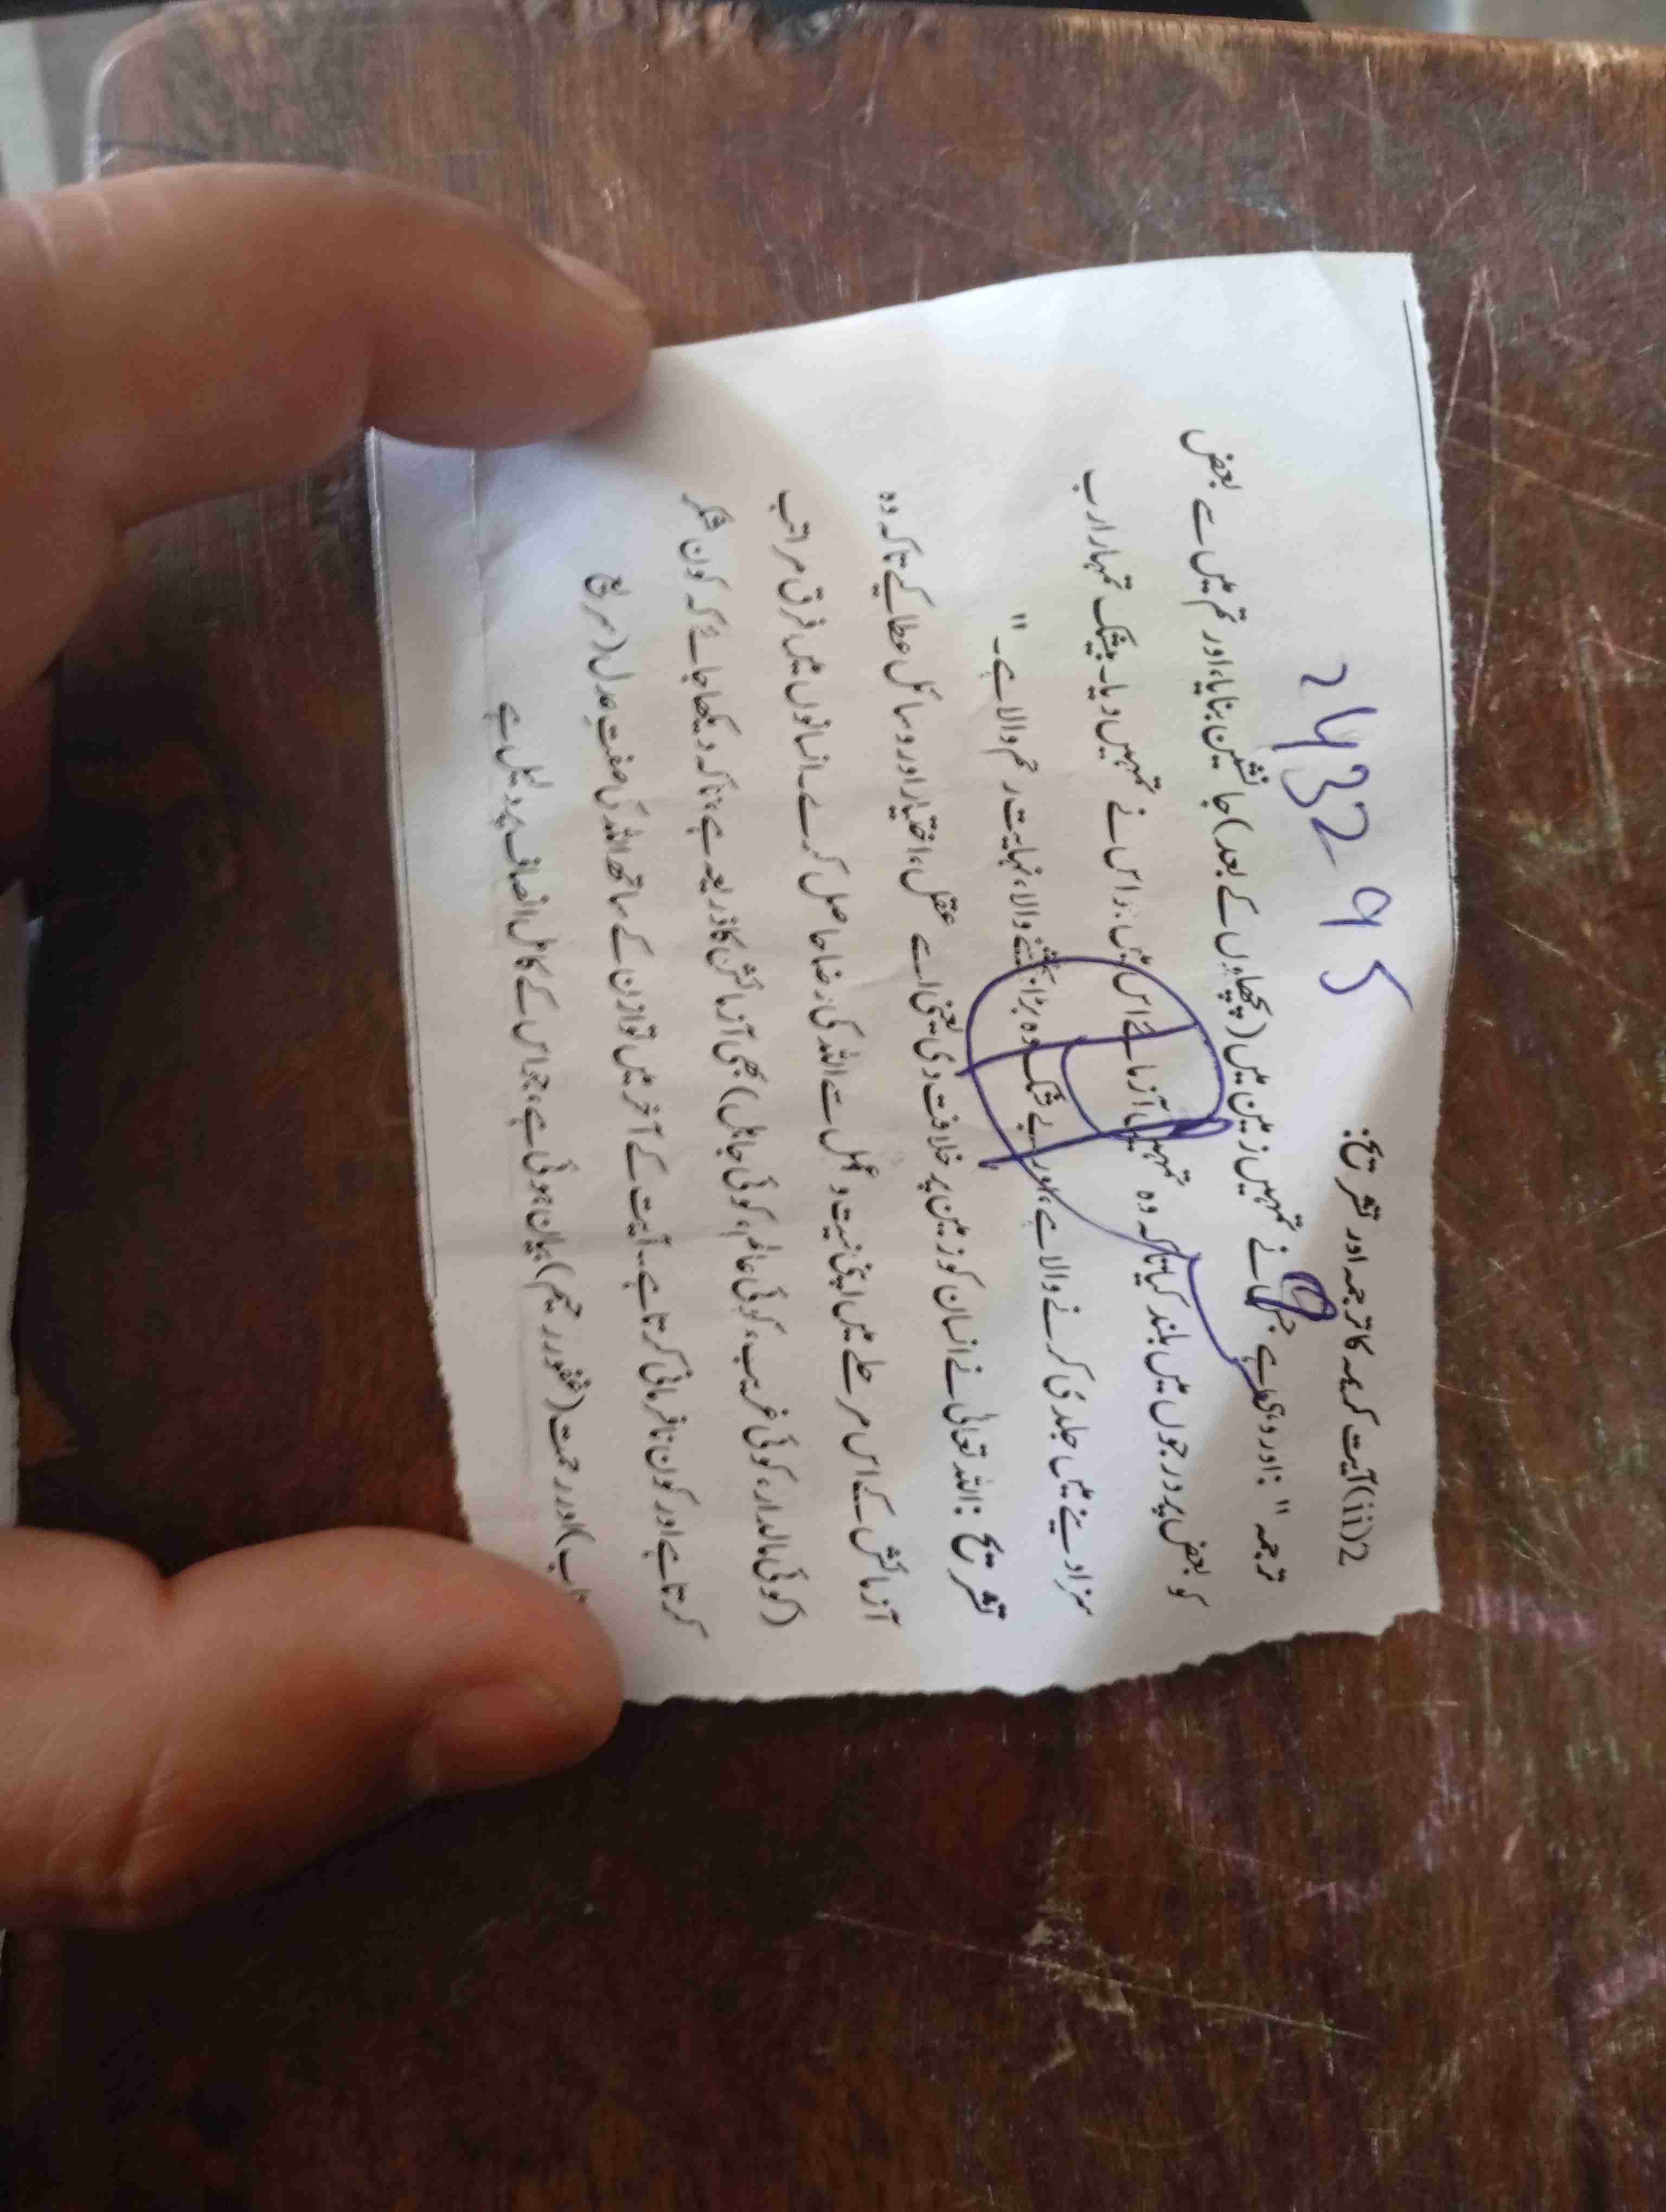 2432 95
2(ii) آیت کریمہ کا ترجمہ اور تشریح:
ترجمہ " : اور وہی ہے جس نے تمہیں زمین میں (پچھلوں کے بعد) جانشین بنایا، اور تم میں سے بعض
کو بعض پر درجوں میں بلند کیا تاکہ وہ تمہیں آزمائے اس میں جو اس نے تمہیں دیا۔ بیشک تمہارا رب
سزا دینے میں جلدی کرنے والا ہے، اور بے شک وہ بڑا بخشنے والا، نہایت رحم والا ہے۔ "
تشریح : اللہ تعالیٰ نے انسان کو زمین پر خلافت دی یعنی اسے عقل، اختیار اور وسائل عطا کیے تاکہ وہ
آزمائش کے اس مرحلے میں اپنی نیت و عمل سے اللہ کی رضا حاصل کرے۔ انسانوں میں فرق مراتب
(کوئی مالدار، کوئی غریب، کوئی عالم، کوئی جاہل) بھی آزمائش کا ذریعہ ہے، تاکہ دیکھا جائے کہ کون شکر
کرتا ہے اور کون نافرمانی کرتا ہے۔ آیت کے آخر میں توازن کے ساتھ اللہ کی صفتِ عدل (سریع
اور رحمت (غفور رحیم) بیان ہوئی ہے، جو اس کے کامل انصاف پر دلیل ہے